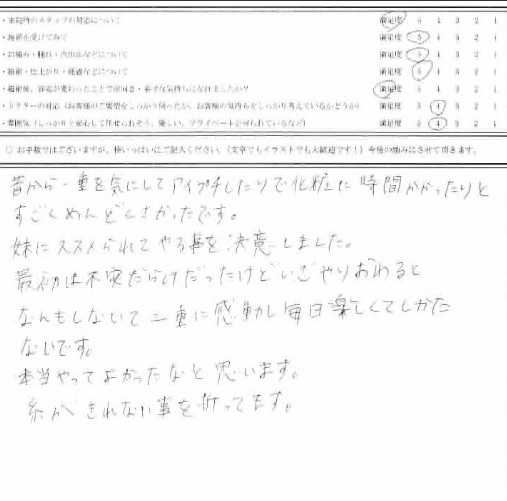 ・来院時のスタッフの対応について 満足度 5 4 3 2 1
・施術を受けてみて 満足度 5 4 3 2 1
・お痛み・腫れ・内出血などについて 満足度 5 4 3 2 1
・施術・仕上がり・経過などについて 満足度 5 4 3 2 1
・施術後、容姿が変わったことで前向き・幸せな気持ちになれましたか? 満足度 5 4 3 2 1
・ドクターの対応（お客様のご要望をしっかり伺ったか、お客様の気持ちをしっかり考えているかどうか） 満足度 5 4 3 2 1
・雰囲気（しっかりと安心して任せられそう、優しい、プライベートが守られているなど） 満足度 5 4 3 2 1
○ お手数ではございますが、枠いっぱいにご記入ください。（文章でもイラストでも大歓迎です！）今後の励みにさせて頂きます。
昔から一重を気にしてアイプチしたりで化粧に時間がかかったりと
すごくめんどくさかったです。
妹にススメられてやる事を決意しました。
最初は不安だらけだったけどいざやりおわると
なんもしないで二重に感動し毎日楽しくてしかた
ないです。
本当やってよかったなと思います。
糸がきれない事を祈ってます。